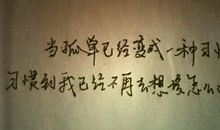 当孤单已经变成一种习
习惯到我已经不再去想该怎么